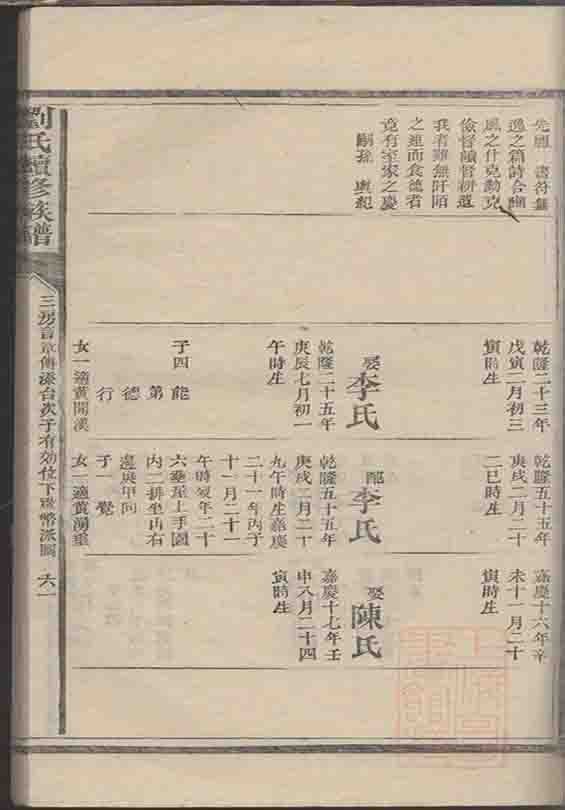 先
逸之篇詩合豳
風之什克勤克
儉督
我者雖無阡陌
之連而食德者
竟有室家之慶
嗣孫
乾隆二十三年
戊寅二月初三
寅時生
娶李氏
乾隆二十五年
庚辰七月初一
午時生
子四
能
第
德
行
女一適黃開漢
乾隆五十五年
庚戌二月二十
二巳時生
配李氏
乾隆五十五年
庚戌二月二十
九午時生嘉慶
二十一年丙子
十一月二十一
午時歿年二十
六葬星上手園
內二排坐山右
邊辰甲向
子一覺
女一適黃
嘉慶十六年辛
未十一月二十
寅時生
娶陳氏
嘉慶十七年壬
申八月二十四
寅時生
劉氏續修族譜
三房言章傳添台次子有効位下
六一